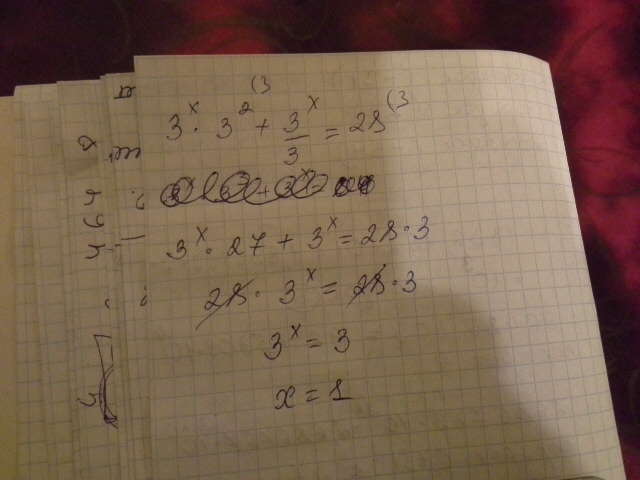 (3
3^x · 3^2 + 3^x/3 = 28 (3
3^x · 27 + 3^x = 28 · 3
28 · 3^x = 28 · 3
3^x = 3
x = 1